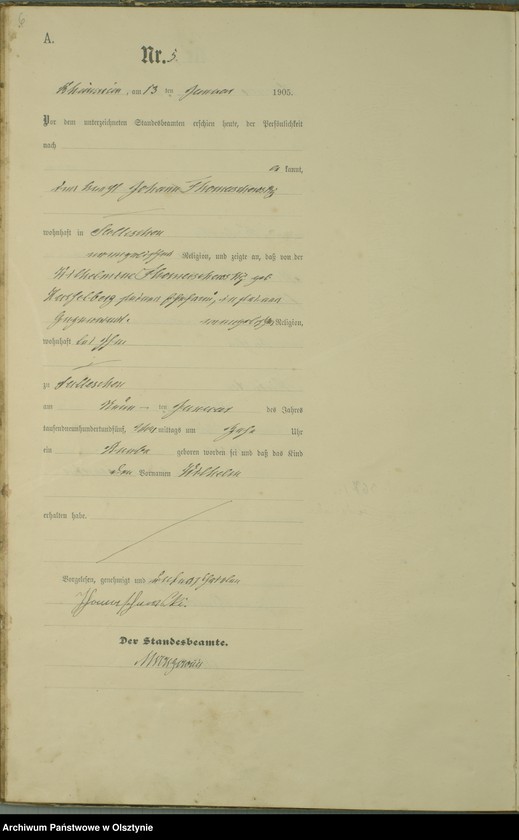 A.
Nr. 5.
Rheinswein, am 13 ten Januar 1905.
Vor dem unterzeichneten Standesbeamten erschien heute, der Persönlichkeit
nach
be kannt,
Johann Thomaschewski
wohnhaft in
evangelischer Religion, und zeigte an, daß von der
Wilhelmine Thomaschewski geb.
Hasselberg seiner Ehefrau, in seiner
Gegenwart evangelischer Religion,
wohnhaft bei ihm
zu
am Januar des Jahres
tausendneunhundertfünf, Vor mittags um Uhr
ein Knabe geboren worden sei und daß das Kind
den Vornamen Wilhelm
erhalten habe.
Vorgelesen, genehmigt und unterschrieben
Thomaschewski.
Der Standesbeamte.
Archiwum Państwowe w Olsztynie